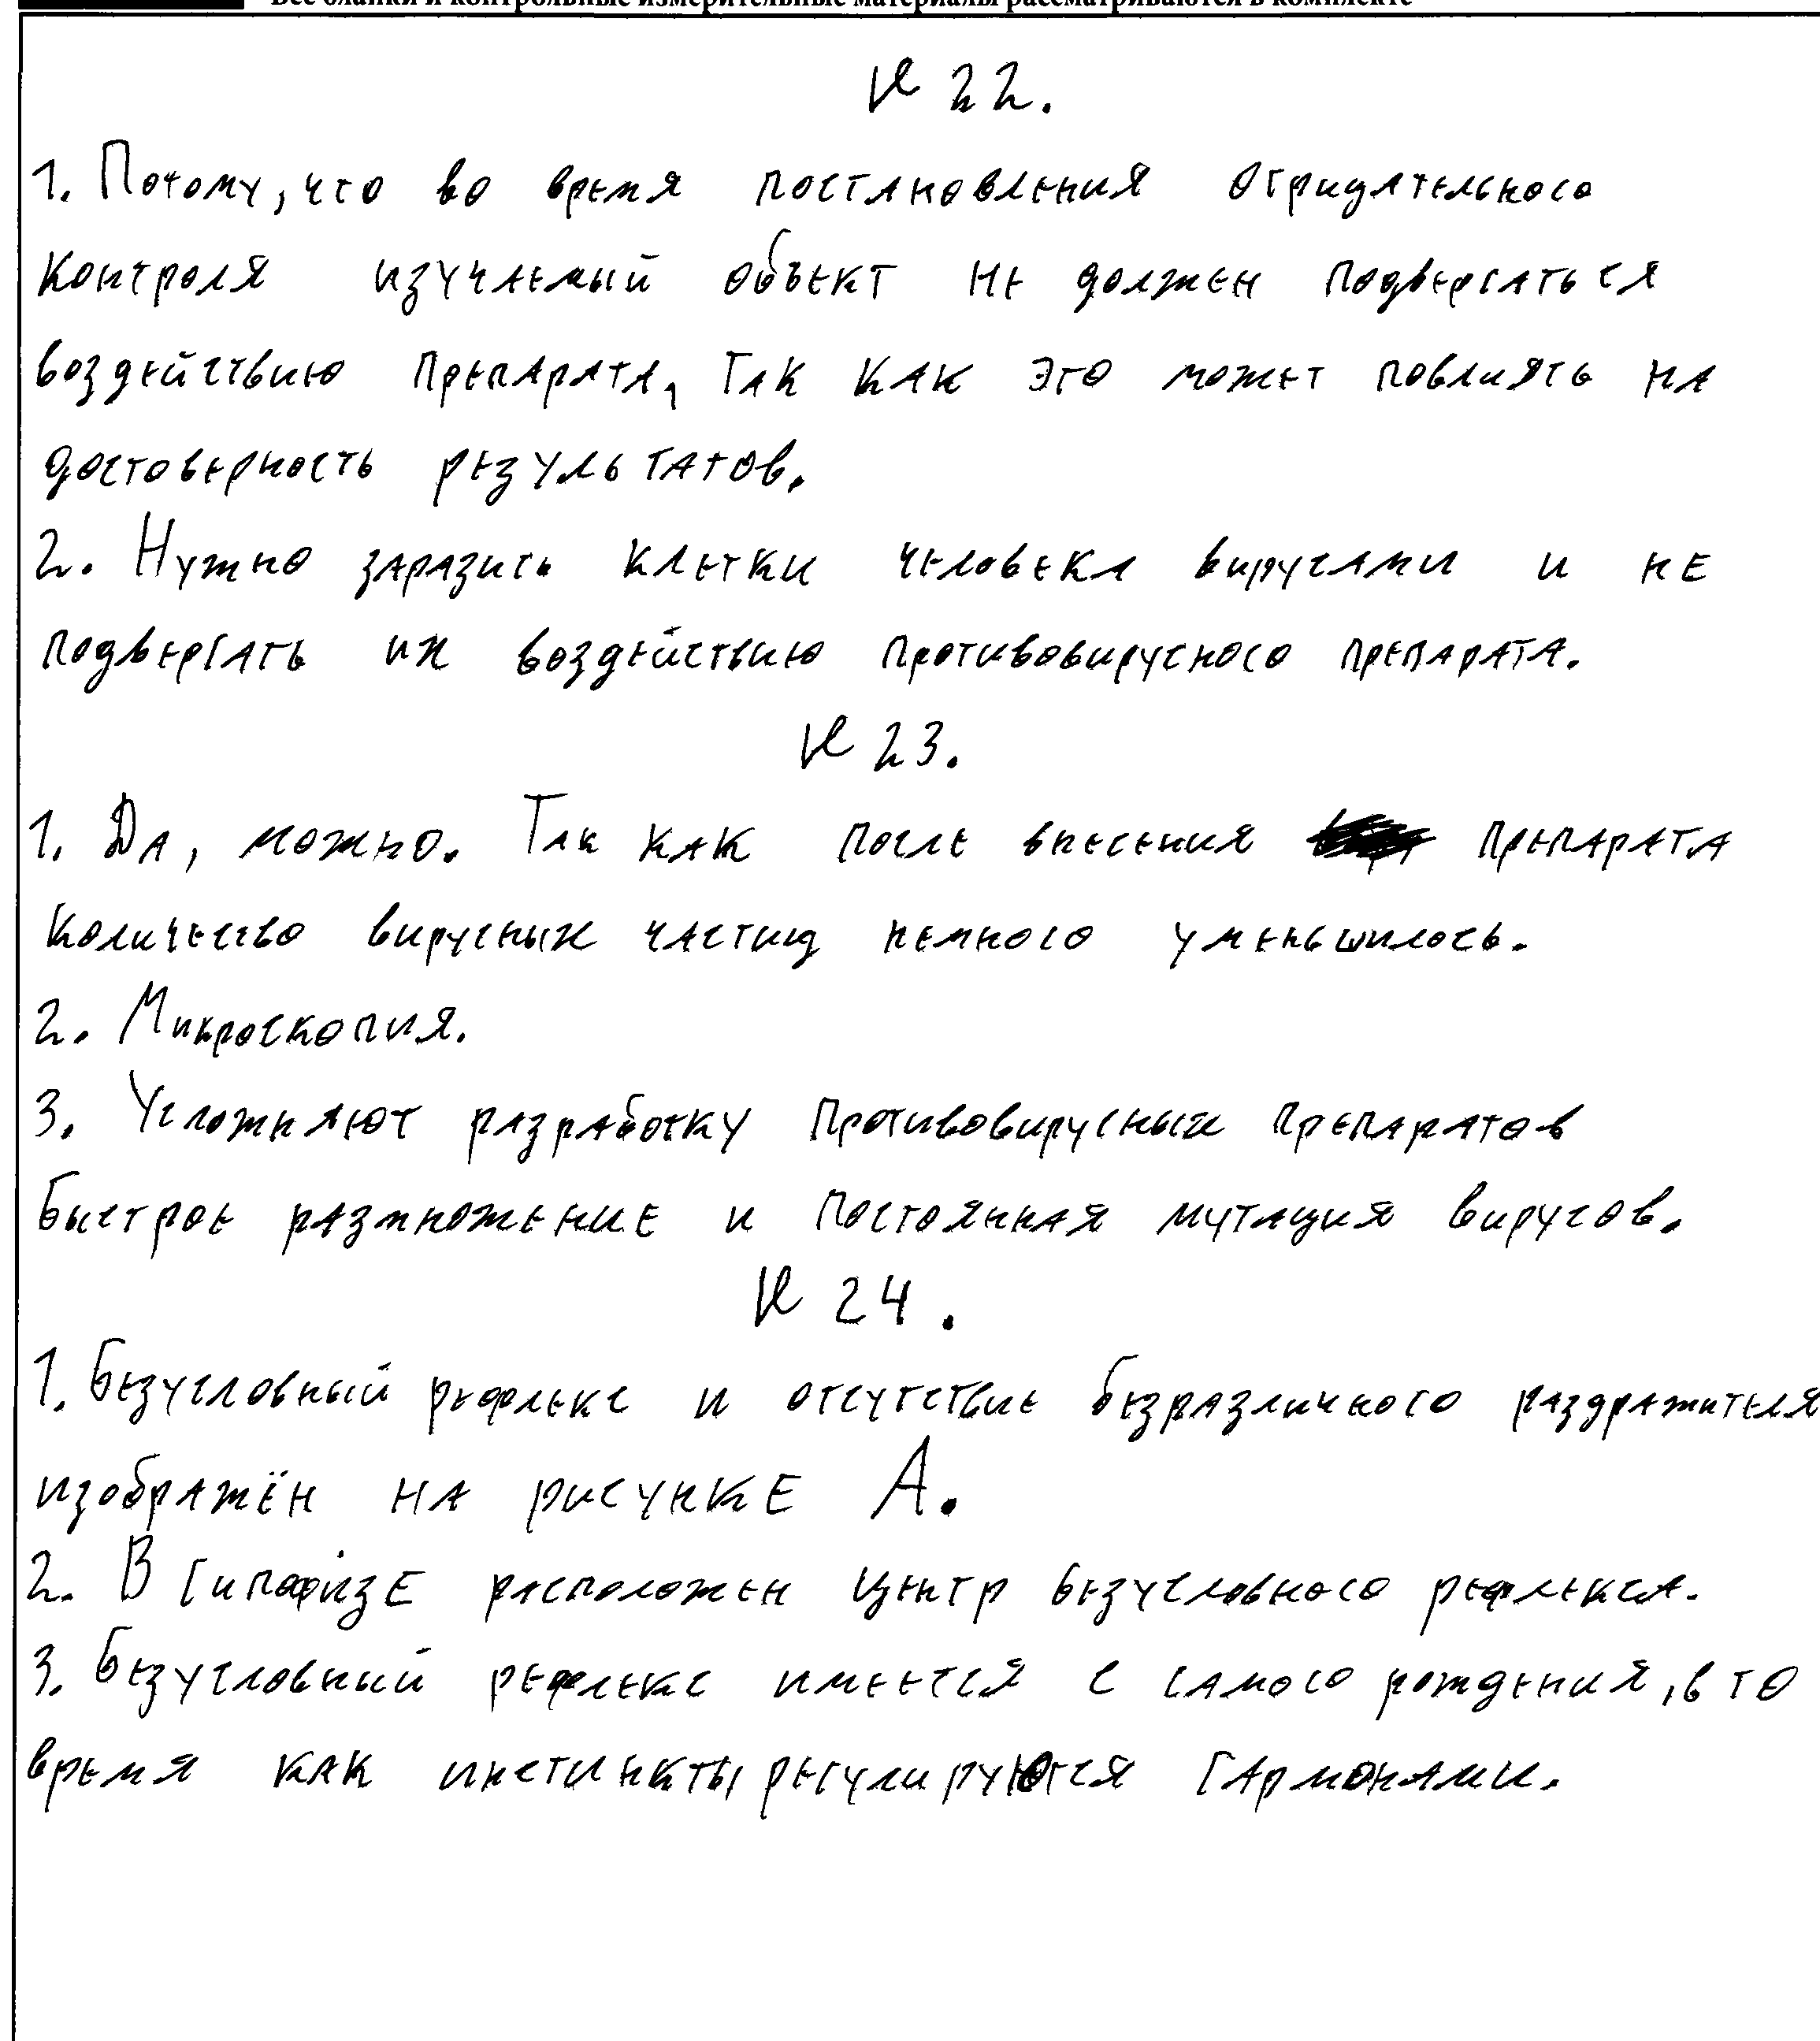 Все бланки и контрольные измерительные материалы рассматриваются в комплекте
№ 22.
1. Потому, что во время постановления отрицательного
контроля изучаемый объект не должен подвергаться
воздействию препарата, так как это может повлиять на
достоверность результатов.
2. Нужно заразить клетки человека вирусами и не
подвергать их воздействию противовирусного препарата.
№ 23.
1. Да, можно. Так как после внесения препарата
количество вирусных частиц немного уменьшилось.
2. Микроскопия.
3. Усложняют разработку противовирусных препаратов
быстрое размножение и постоянная мутация вирусов.
№ 24.
1. Безусловный рефлекс и отсутствие безразличного раздражителя
изображён на рисунке А.
2. В гипофизе расположен центр безусловного рефлекса.
3. Безусловный рефлекс имеется с самого рождения, в то
время как инстинкты регулируются гармонами.